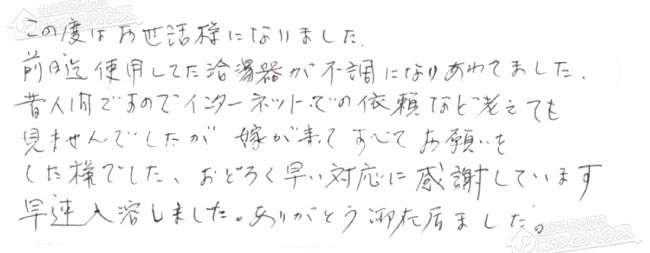 この度はお世話様になりました.
前日迄使用してた給湯器が不調になりあわてました.
昔人間ですのでインターネットでの依頼など考えても
見ませんでしたが 嫁が来てすべてお願いを
した様でした、おどろく早い対応に感謝しています
早速入溶しました。ありがとう御在居ました。